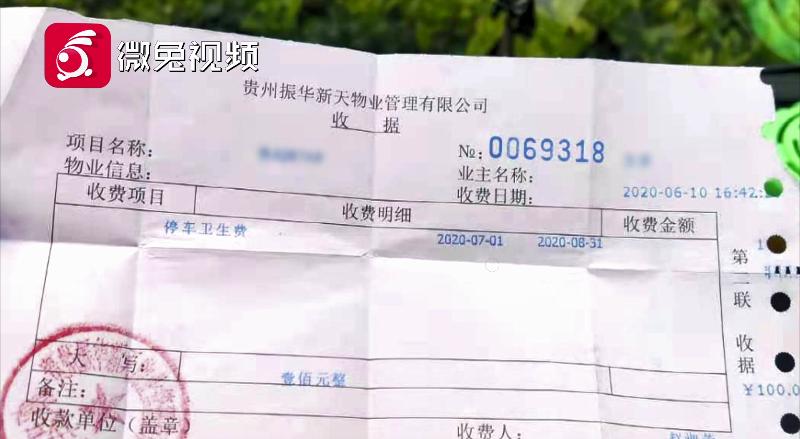 微兔视频
贵州振华新天物业管理有限公司
收 据
项目名称:
№: 0069318
物业信息:
业主名称:
收费日期: 2020-06-10 16:42:
收费项目 收费明细 收费金额
停车卫生费 2020-07-01 2020-08-31 1
第二联 收据
大 写: 壹佰元整
¥100.0
备注:
收款单位(盖章)
收费人: